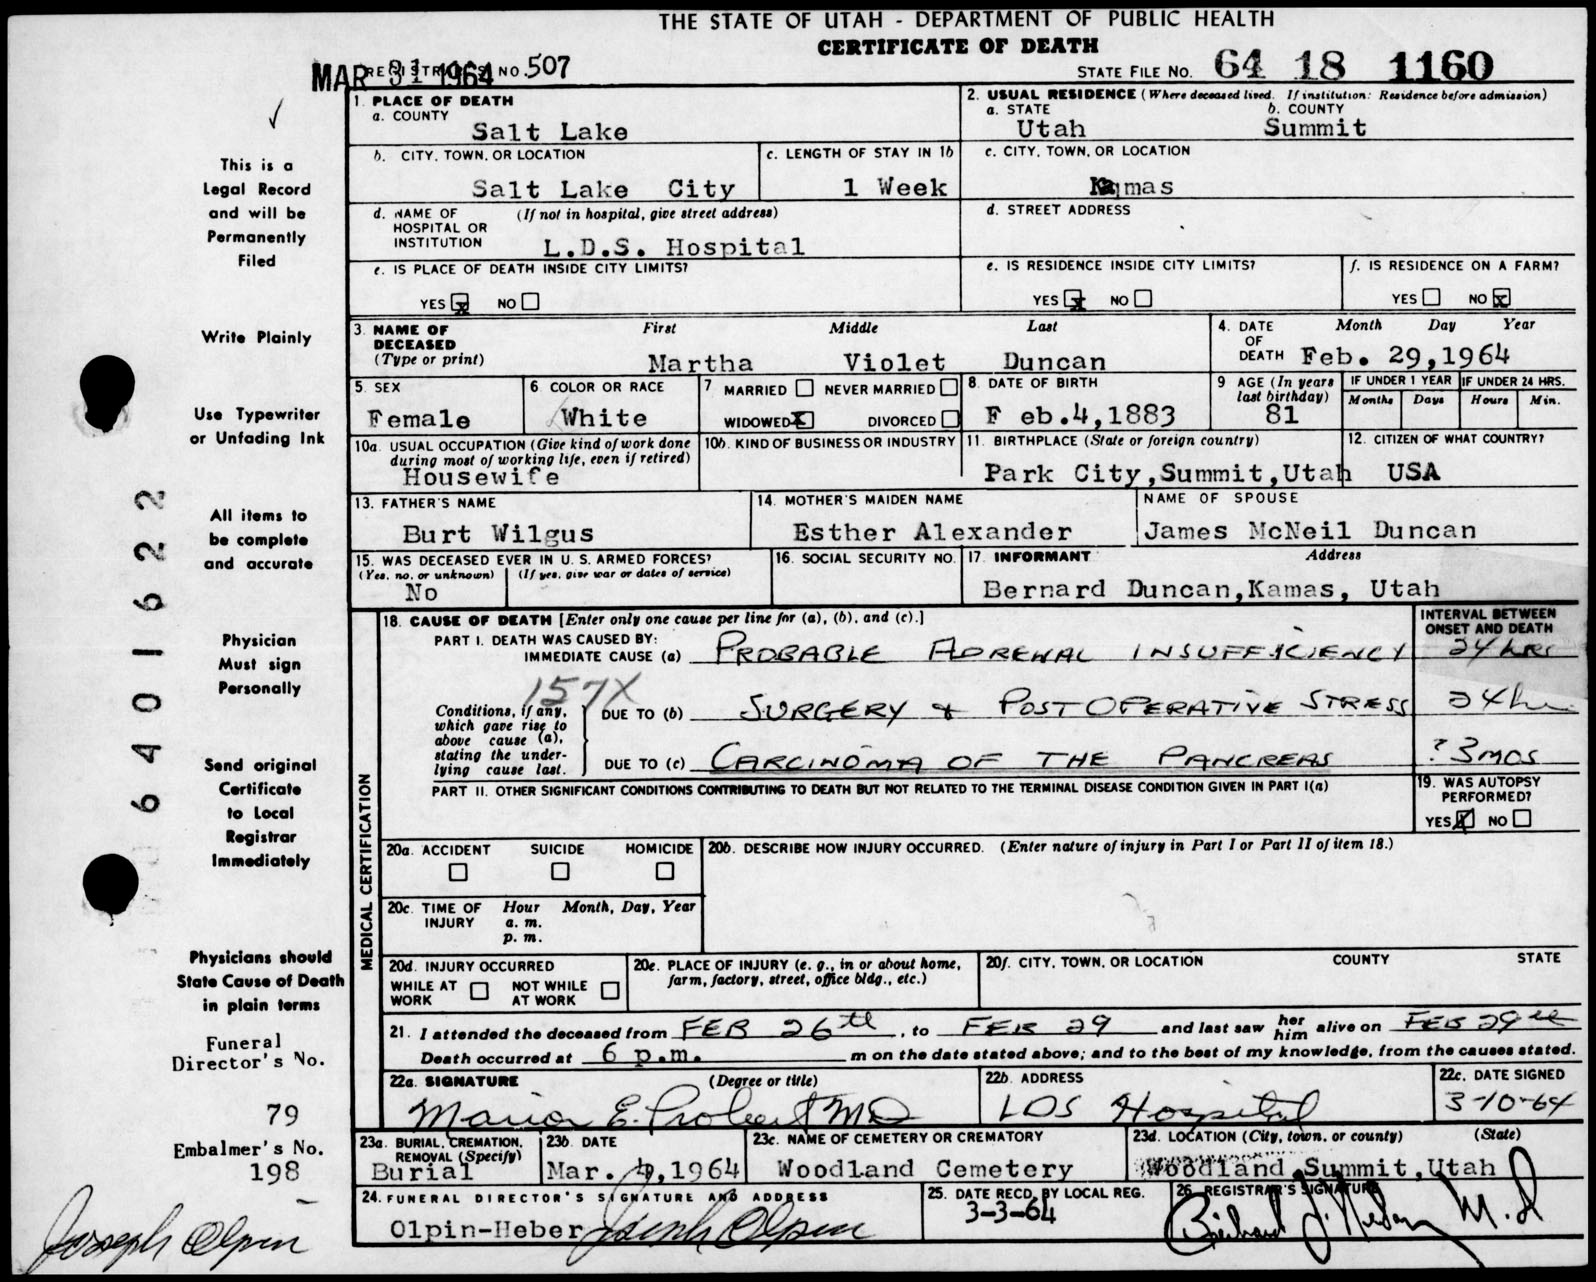 THE STATE OF UTAH - DEPARTMENT OF PUBLIC HEALTH
CERTIFICATE OF DEATH
MAR 31 1964 REGISTRAR'S NO. 507
STATE FILE NO. 64 18 1160
This is a
Legal Record
and will be
Permanently
Filed
Write Plainly
Use Typewriter
or Unfading Ink
All items to
be complete
and accurate
Physician
Must sign
Personally
Send original
Certificate
to Local
Registrar
Immediately
Physicians should
State Cause of Death
in plain terms
Funeral
Director's No.
79
Embalmer's No.
198
Joseph Olpin
64 01622
1. PLACE OF DEATH
a. COUNTY
Salt Lake
2. USUAL RESIDENCE (Where deceased lived. If institution: Residence before admission)
a. STATE b. COUNTY
Utah Summit
b. CITY, TOWN, OR LOCATION
Salt Lake City
c. LENGTH OF STAY IN 1b
1 Week
c. CITY, TOWN, OR LOCATION
Kamas
d. NAME OF HOSPITAL OR INSTITUTION (If not in hospital, give street address)
L.D.S. Hospital
d. STREET ADDRESS
e. IS PLACE OF DEATH INSIDE CITY LIMITS?
YES x NO
e. IS RESIDENCE INSIDE CITY LIMITS?
YES x NO
f. IS RESIDENCE ON A FARM?
YES NO x
3. NAME OF DECEASED (Type or print)
First Middle Last
Martha Violet Duncan
4. DATE OF DEATH Month Day Year
Feb. 29,1964
5. SEX
Female
6. COLOR OR RACE
White
7 MARRIED NEVER MARRIED
WIDOWED x DIVORCED
8. DATE OF BIRTH
F eb.4,1883
9 AGE (In years last birthday)
81
IF UNDER 1 YEAR IF UNDER 24 HRS.
Months Days Hours Min.
10a. USUAL OCCUPATION (Give kind of work done
during most of working life, even if retired)
Housewife
10b. KIND OF BUSINESS OR INDUSTRY
11. BIRTHPLACE (State or foreign country)
Park City,Summit,Utah
12. CITIZEN OF WHAT COUNTRY?
USA
13. FATHER'S NAME
Burt Wilgus
14. MOTHER'S MAIDEN NAME
Esther Alexander
NAME OF SPOUSE
James McNeil Duncan
15. WAS DECEASED EVER IN U. S. ARMED FORCES?
(Yes, no, or unknown) (If yes, give war or dates of service)
No
16. SOCIAL SECURITY NO.
17. INFORMANT Address
Bernard Duncan,Kamas, Utah
MEDICAL CERTIFICATION
18. CAUSE OF DEATH [Enter only one cause per line for (a), (b), and (c).]
INTERVAL BETWEEN
ONSET AND DEATH
PART I. DEATH WAS CAUSED BY:
IMMEDIATE CAUSE (a) PROBABLE ADRENAL INSUFFICIENCY 24 hrs
157X
Conditions, if any,
which gave rise to
above cause (a),
stating the under-
lying cause last.
DUE TO (b) SURGERY + POSTOPERATIVE STRESS 24 hr
DUE TO (c) CARCINOMA OF THE PANCREAS ? 3 mos
PART II. OTHER SIGNIFICANT CONDITIONS CONTRIBUTING TO DEATH BUT NOT RELATED TO THE TERMINAL DISEASE CONDITION GIVEN IN PART I(a)
19. WAS AUTOPSY
PERFORMED?
YES x NO
20a. ACCIDENT SUICIDE HOMICIDE
20b. DESCRIBE HOW INJURY OCCURRED. (Enter nature of injury in Part I or Part II of item 18.)
20c. TIME OF INJURY Hour Month, Day, Year
a. m.
p. m.
20d. INJURY OCCURRED
WHILE AT WORK NOT WHILE AT WORK
20e. PLACE OF INJURY (e. g., in or about home,
farm, factory, street, office bldg., etc.)
20f. CITY, TOWN, OR LOCATION COUNTY STATE
21. I attended the deceased from FEB 26th, to FEB 29 and last saw her him alive on FEB 29th
Death occurred at 6 p.m. m on the date stated above; and to the best of my knowledge, from the causes stated.
22a. SIGNATURE (Degree or title)
Marion E. Probert MD
22b. ADDRESS
LDS Hospital
22c. DATE SIGNED
3-10-64
23a. BURIAL, CREMATION,
REMOVAL (Specify)
Burial
23b. DATE
Mar. 4,1964
23c. NAME OF CEMETERY OR CREMATORY
Woodland Cemetery
23d. LOCATION (City, town, or county) (State)
Woodland,Summit,Utah
24. FUNERAL DIRECTOR'S SIGNATURE AND ADDRESS
Olpin-Heber Joseph Olpin
25. DATE RECD. BY LOCAL REG.
3-3-64
26. REGISTRAR'S SIGNATURE
M.D